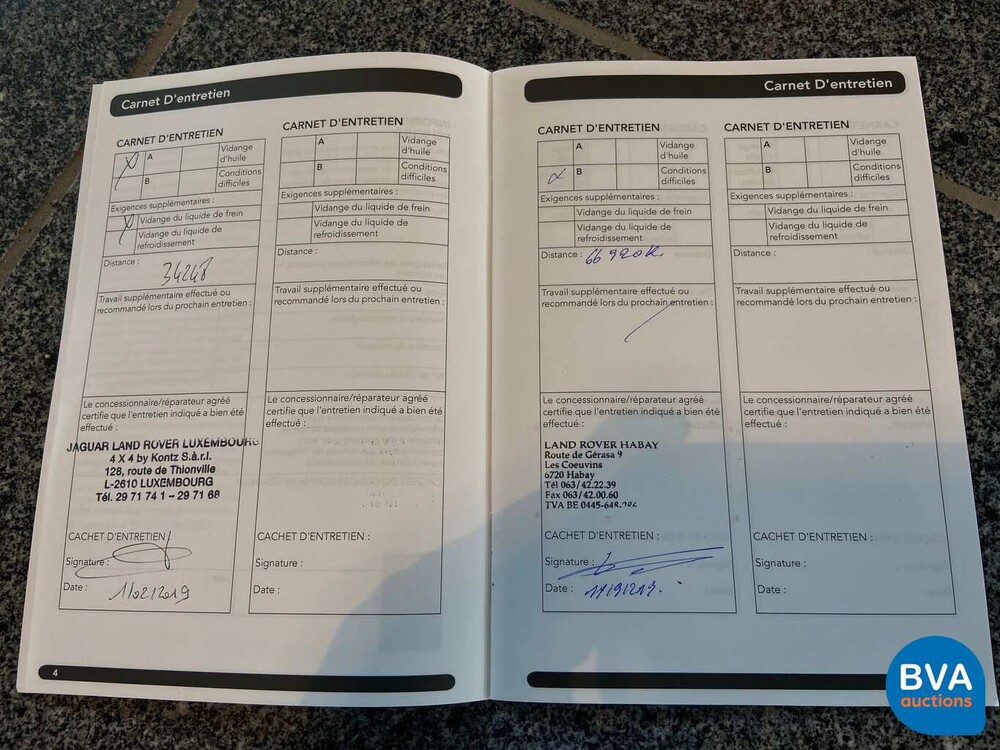 Carnet D'entretien
CARNET D'ENTRETIEN
A
Vidange
d'huile
B
Conditions
difficiles
Exigences supplémentaires :
Vidange du liquide de frein
Vidange du liquide de
refroidissement
Distance :
34248
Travail supplémentaire effectué ou
recommandé lors du prochain entretien :
Le concessionnaire/réparateur agréé
certifie que l'entretien indiqué a bien été
effectué :
JAGUAR LAND ROVER LUXEMBOURG
4 X 4 by Kontz S.à.r.l.
128, route de Thionville
L-2610 LUXEMBOURG
Tél. 29 71 74 1 – 29 71 68
CACHET D'ENTRETIEN :
Signature :
Date :
4
CARNET D'ENTRETIEN
A
Vidange
d'huile
B
Conditions
difficiles
Exigences supplémentaires :
Vidange du liquide de frein
Vidange du liquide de
refroidissement
Distance :
Travail supplémentaire effectué ou
recommandé lors du prochain entretien :
Le concessionnaire/réparateur agréé
certifie que l'entretien indiqué a bien été
effectué :
CACHET D'ENTRETIEN :
Signature :
Date :
Carnet D'entretien
CARNET D'ENTRETIEN
A
Vidange
d'huile
B
Conditions
difficiles
Exigences supplémentaires :
Vidange du liquide de frein
Vidange du liquide de
refroidissement
Distance : 66 920k.
Travail supplémentaire effectué ou
recommandé lors du prochain entretien :
Le concessionnaire/réparateur agréé
certifie que l'entretien indiqué a bien été
effectué :
LAND ROVER HABAY
Route de Gérasa 9
Les Coeuvins
6720 Habay
Tél 063/42.22.39
Fax 063/42.00.60
TVA BE
CACHET D'ENTRETIEN :
Signature :
Date :
CARNET D'ENTRETIEN
A
Vidange
d'huile
B
Conditions
difficiles
Exigences supplémentaires :
Vidange du liquide de frein
Vidange du liquide de
refroidissement
Distance :
Travail supplémentaire effectué ou
recommandé lors du prochain entretien :
Le concessionnaire/réparateur agréé
certifie que l'entretien indiqué a bien été
effectué :
CACHET D'ENTRETIEN :
Signature :
Date :
BVA
auctions